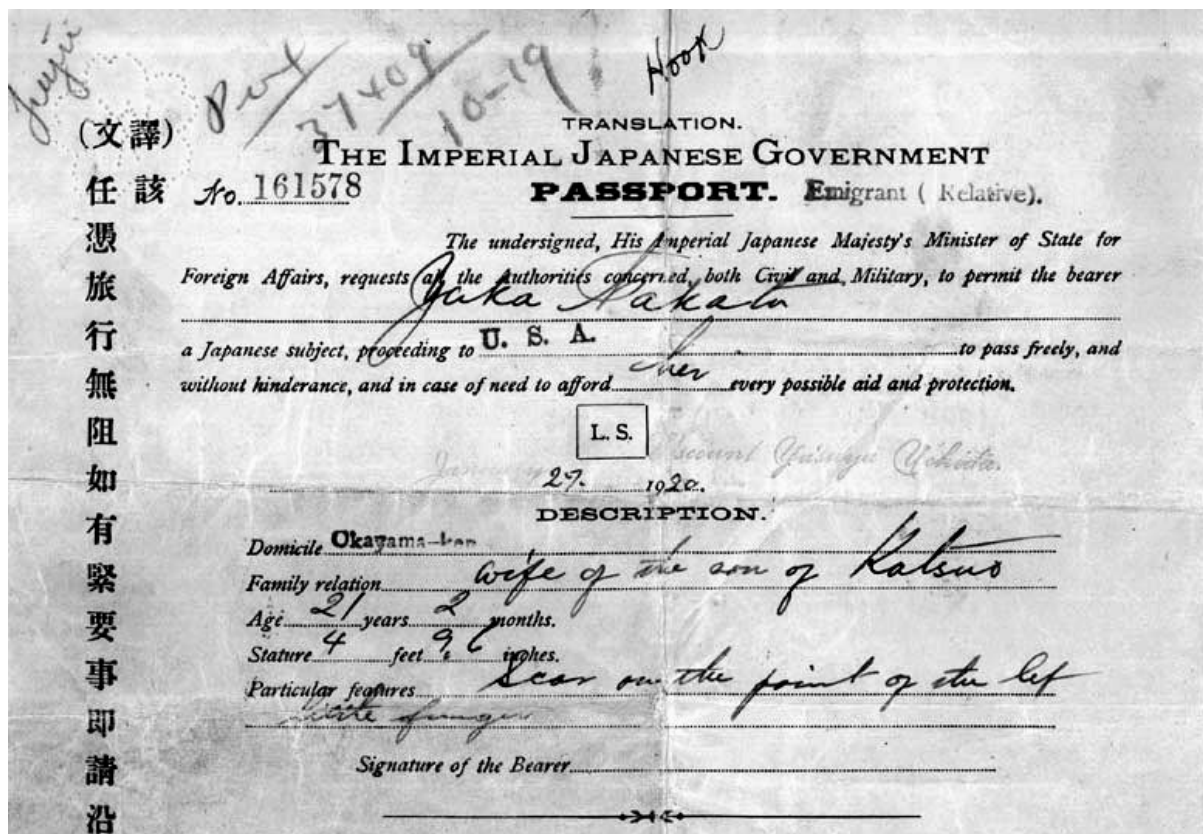 37409
10-19
Hook
TRANSLATION.
THE IMPERIAL JAPANESE GOVERNMENT
No. 161578 PASSPORT. Emigrant ( Relative).
The undersigned, His Imperial Japanese Majesty's Minister of State for
Foreign Affairs, requests all the Authorities concerned, both Civil and Military, to permit the bearer
Nakata
a Japanese subject, proceeding to U. S. A. to pass freely, and
without hinderance, and in case of need to afford her every possible aid and protection.
L. S.
January Viscount Yasuya Uchida.
27. 1920.
DESCRIPTION.
Domicile Okayama-ken
Family relation wife of the son of Katsuo
Age 21 years 2 months.
Stature 4 feet 9.6 inches.
Particular features Scar on the point of the lef
little finger
Signature of the Bearer
(譯文)
該
任憑旅行無阻如有緊要事即請沿